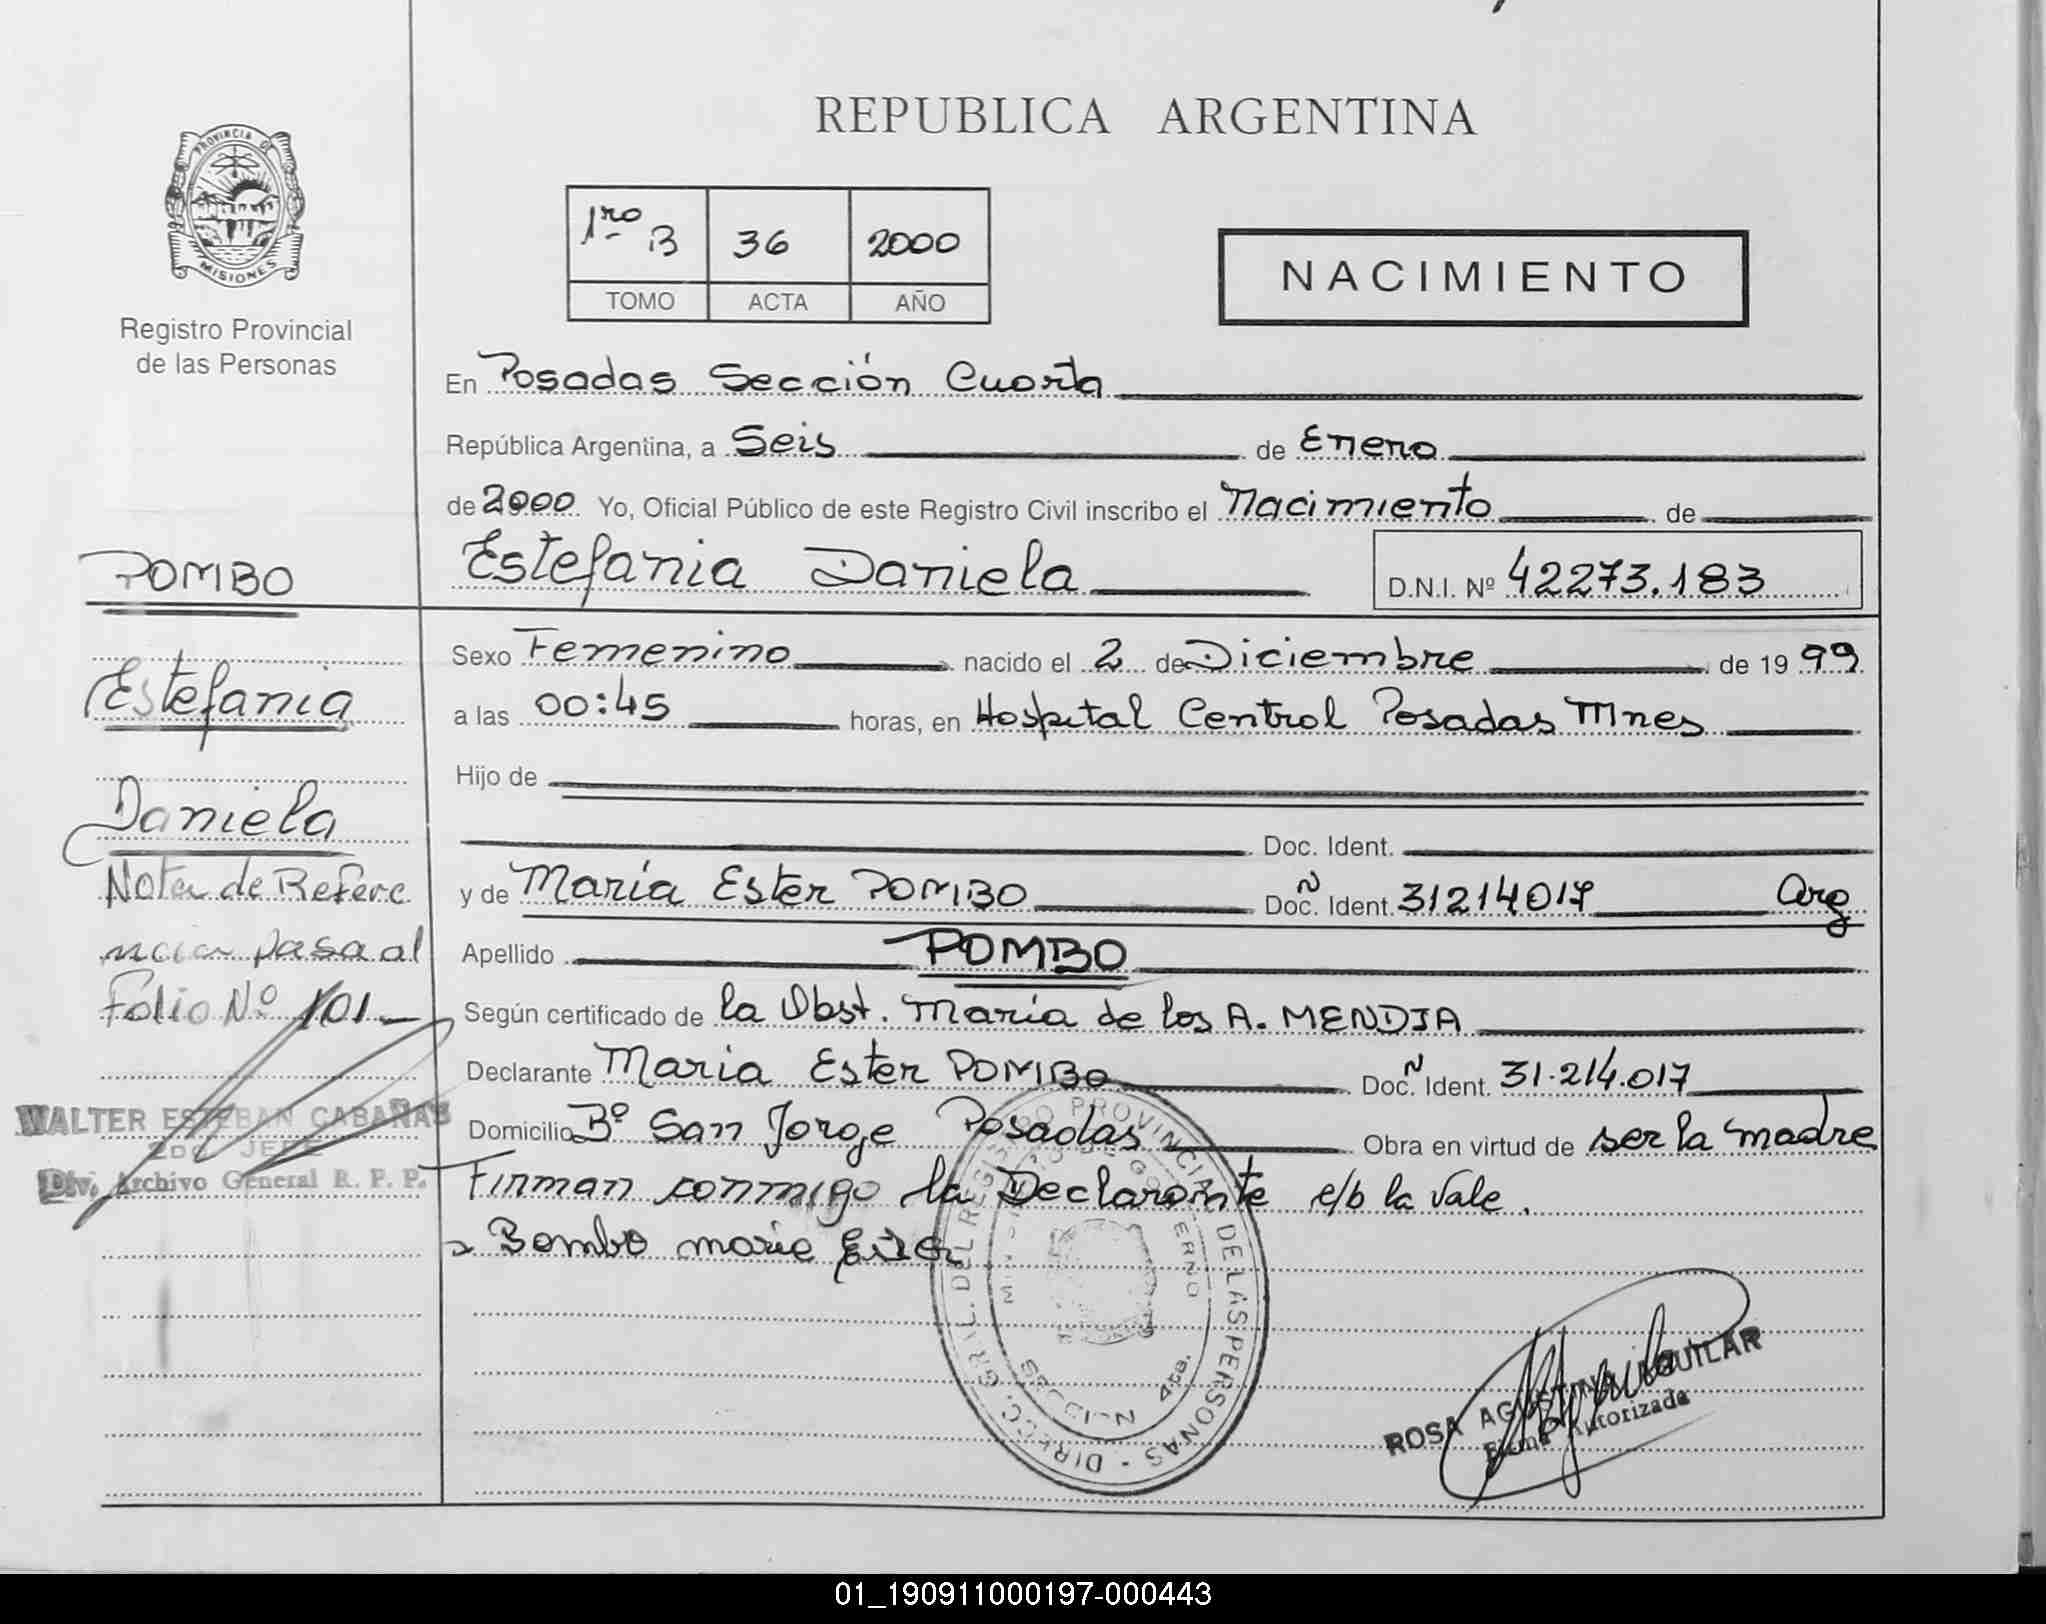 REPUBLICA ARGENTINA
PROVINCIA D
MISIONES
Registro Provincial
de las Personas
1ro B 36 2000
TOMO ACTA AÑO
NACIMIENTO
En Posadas Sección Cuarta
República Argentina, a Seis de Enero
de 2000 Yo, Oficial Público de este Registro Civil inscribo el Nacimiento de
Estefania Daniela D.N.I. Nº 42273.183
Sexo Femenino nacido el 2 de Diciembre de 19 99
a las 00:45 horas, en Hospital Central Posadas Mnes
Hijo de
Doc. Ident.
y de María Ester POMBO Doc. Ñ Ident. 31214017 Arg
Apellido POMBO
Según certificado de la Obst. María de los A. MENDIA
Declarante Maria Ester POMBO Doc. Ñ Ident. 31.214.017
Domicilio Bº San Jorge Posadas Obra en virtud de ser la madre
Firman conmigo la Declarante e/b la Vale.
Bombo marie Ester
POMBO
Estefania
Daniela
Nota de Refere
ncia pasa al
Folio Nº 101
WALTER ESTEBAN CABAÑAS
2DO JEFE
Div. Archivo General R. P. P.
DIRECC. GRAL. DEL REGISTRO PROVINCIAL DE LAS PERSONAS
MINISTERIO DE GOBIERNO
SECCION 4ta.
ROSA AGUSTINA AGUILAR
Firma Autorizada
01_190911000197-000443